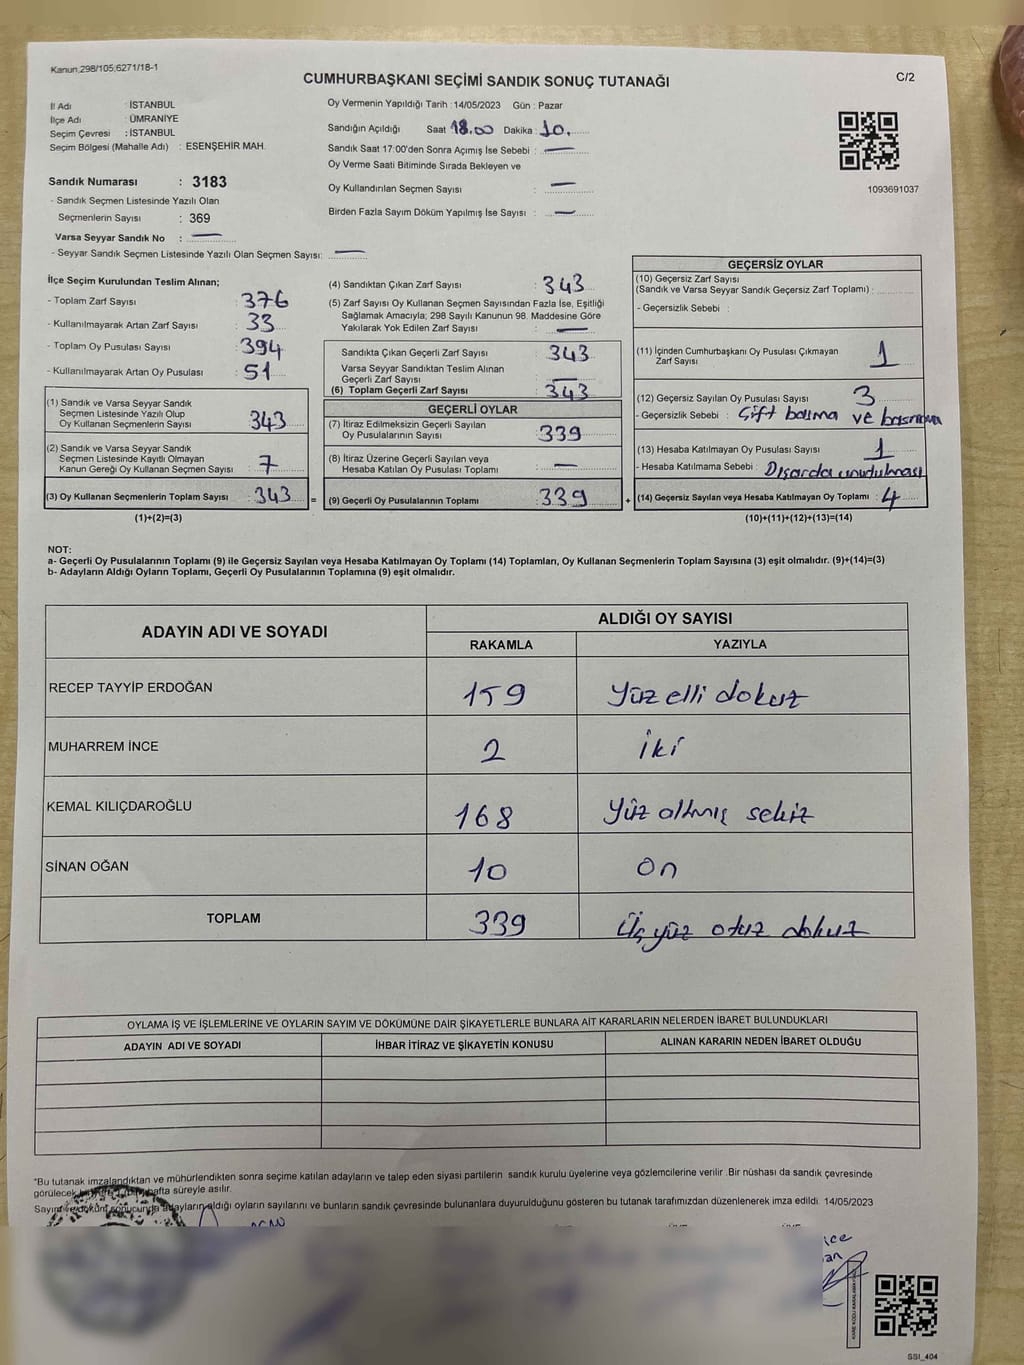 Kanun 298/105;6271/18-1
CUMHURBAŞKANI SEÇİMİ SANDIK SONUÇ TUTANAĞI
C/2
İl Adı : İSTANBUL
İlçe Adı : ÜMRANİYE
Seçim Çevresi : İSTANBUL
Seçim Bölgesi (Mahalle Adı) : ESENŞEHİR MAH.
Sandık Numarası : 3183
- Sandık Seçmen Listesinde Yazılı Olan
Seçmenlerin Sayısı : 369
Varsa Seyyar Sandık No : —
- Seyyar Sandık Seçmen Listesinde Yazılı Olan Seçmen Sayısı: —
Oy Vermenin Yapıldığı Tarih : 14/05/2023 Gün : Pazar
Sandığın Açıldığı Saat 18.00 Dakika : 10.
Sandık Saat 17:00'den Sonra Açımış İse Sebebi : —
Oy Verme Saati Bitiminde Sırada Bekleyen ve
Oy Kullandırılan Seçmen Sayısı : —
Birden Fazla Sayım Döküm Yapılmış İse Sayısı : —
1093691037
İlçe Seçim Kurulundan Teslim Alınan;
- Toplam Zarf Sayısı : 376
- Kullanılmayarak Artan Zarf Sayısı : 33
- Toplam Oy Pusulası Sayısı : 394
- Kullanılmayarak Artan Oy Pusulası : 51
(1) Sandık ve Varsa Seyyar Sandık
Seçmen Listesinde Yazılı Olup
Oy Kullanan Seçmenlerin Sayısı : 343
(2) Sandık ve Varsa Seyyar Sandık
Seçmen Listesinde Kayıtlı Olmayan
Kanun Gereği Oy Kullanan Seçmen Sayısı : 7
(3) Oy Kullanan Seçmenlerin Toplam Sayısı : 343 =
(1)+(2)=(3)
(4) Sandıktan Çıkan Zarf Sayısı : 343
(5) Zarf Sayısı Oy Kullanan Seçmen Sayısından Fazla İse, Eşitliği
Sağlamak Amacıyla; 298 Sayılı Kanunun 98. Maddesine Göre
Yakılarak Yok Edilen Zarf Sayısı : —
Sandıkta Çıkan Geçerli Zarf Sayısı : 343
Varsa Seyyar Sandıktan Teslim Alınan
Geçerli Zarf Sayısı : —
(6) Toplam Geçerli Zarf Sayısı : 343
GEÇERLİ OYLAR
(7) İtiraz Edilmeksizin Geçerli Sayılan
Oy Pusulalarının Sayısı : 339
(8) İtiraz Üzerine Geçerli Sayılan veya
Hesaba Katılan Oy Pusulası Toplamı : —
(9) Geçerli Oy Pusulalarının Toplamı : 339 +
GEÇERSİZ OYLAR
(10) Geçersiz Zarf Sayısı
(Sandık ve Varsa Seyyar Sandık Geçersiz Zarf Toplamı) :
- Geçersizlik Sebebi :
(11) İçinden Cumhurbaşkanı Oy Pusulası Çıkmayan
Zarf Sayısı : 1
(12) Geçersiz Sayılan Oy Pusulası Sayısı : 3
- Geçersizlik Sebebi : Çift basma ve basmama
(13) Hesaba Katılmayan Oy Pusulası Sayısı : 1
- Hesaba Katılmama Sebebi : Dışarda unutulması
(14) Geçersiz Sayılan veya Hesaba Katılmayan Oy Toplamı : 4
(10)+(11)+(12)+(13)=(14)
NOT:
a- Geçerli Oy Pusulalarının Toplamı (9) ile Geçersiz Sayılan veya Hesaba Katılmayan Oy Toplamı (14) Toplamları, Oy Kullanan Seçmenlerin Toplam Sayısına (3) eşit olmalıdır. (9)+(14)=(3)
b- Adayların Aldığı Oyların Toplamı, Geçerli Oy Pusulalarının Toplamına (9) eşit olmalıdır.
ADAYIN ADI VE SOYADI
ALDIĞI OY SAYISI
RAKAMLA YAZIYLA
RECEP TAYYİP ERDOĞAN 159 Yüz elli dokuz
MUHARREM İNCE 2 iki
KEMAL KILIÇDAROĞLU 168 Yüz altmış sekiz
SİNAN OĞAN 10 on
TOPLAM 339 Üç yüz otuz dokuz
OYLAMA İŞ VE İŞLEMLERİNE VE OYLARIN SAYIM VE DÖKÜMÜNE DAİR ŞİKAYETLERLE BUNLARA AİT KARARLARIN NELERDEN İBARET BULUNDUKLARI
ADAYIN ADI VE SOYADI İHBAR İTİRAZ VE ŞİKAYETİN KONUSU ALINAN KARARIN NEDEN İBARET OLDUĞU
*Bu tutanak imzalandıktan ve mühürlendikten sonra seçime katılan adayların ve talep eden siyasi partilerin sandık kurulu üyelerine veya gözlemcilerine verilir .Bir nüshası da sandık çevresinde
görülecek hafta süreyle asılır.
Sayım ve döküm sonucunda adayların aldığı oyların sayılarını ve bunların sandık çevresinde bulunanlara duyurulduğunu gösteren bu tutanak tarafımızdan düzenlenerek imza edildi. 14/05/2023
SSI_404